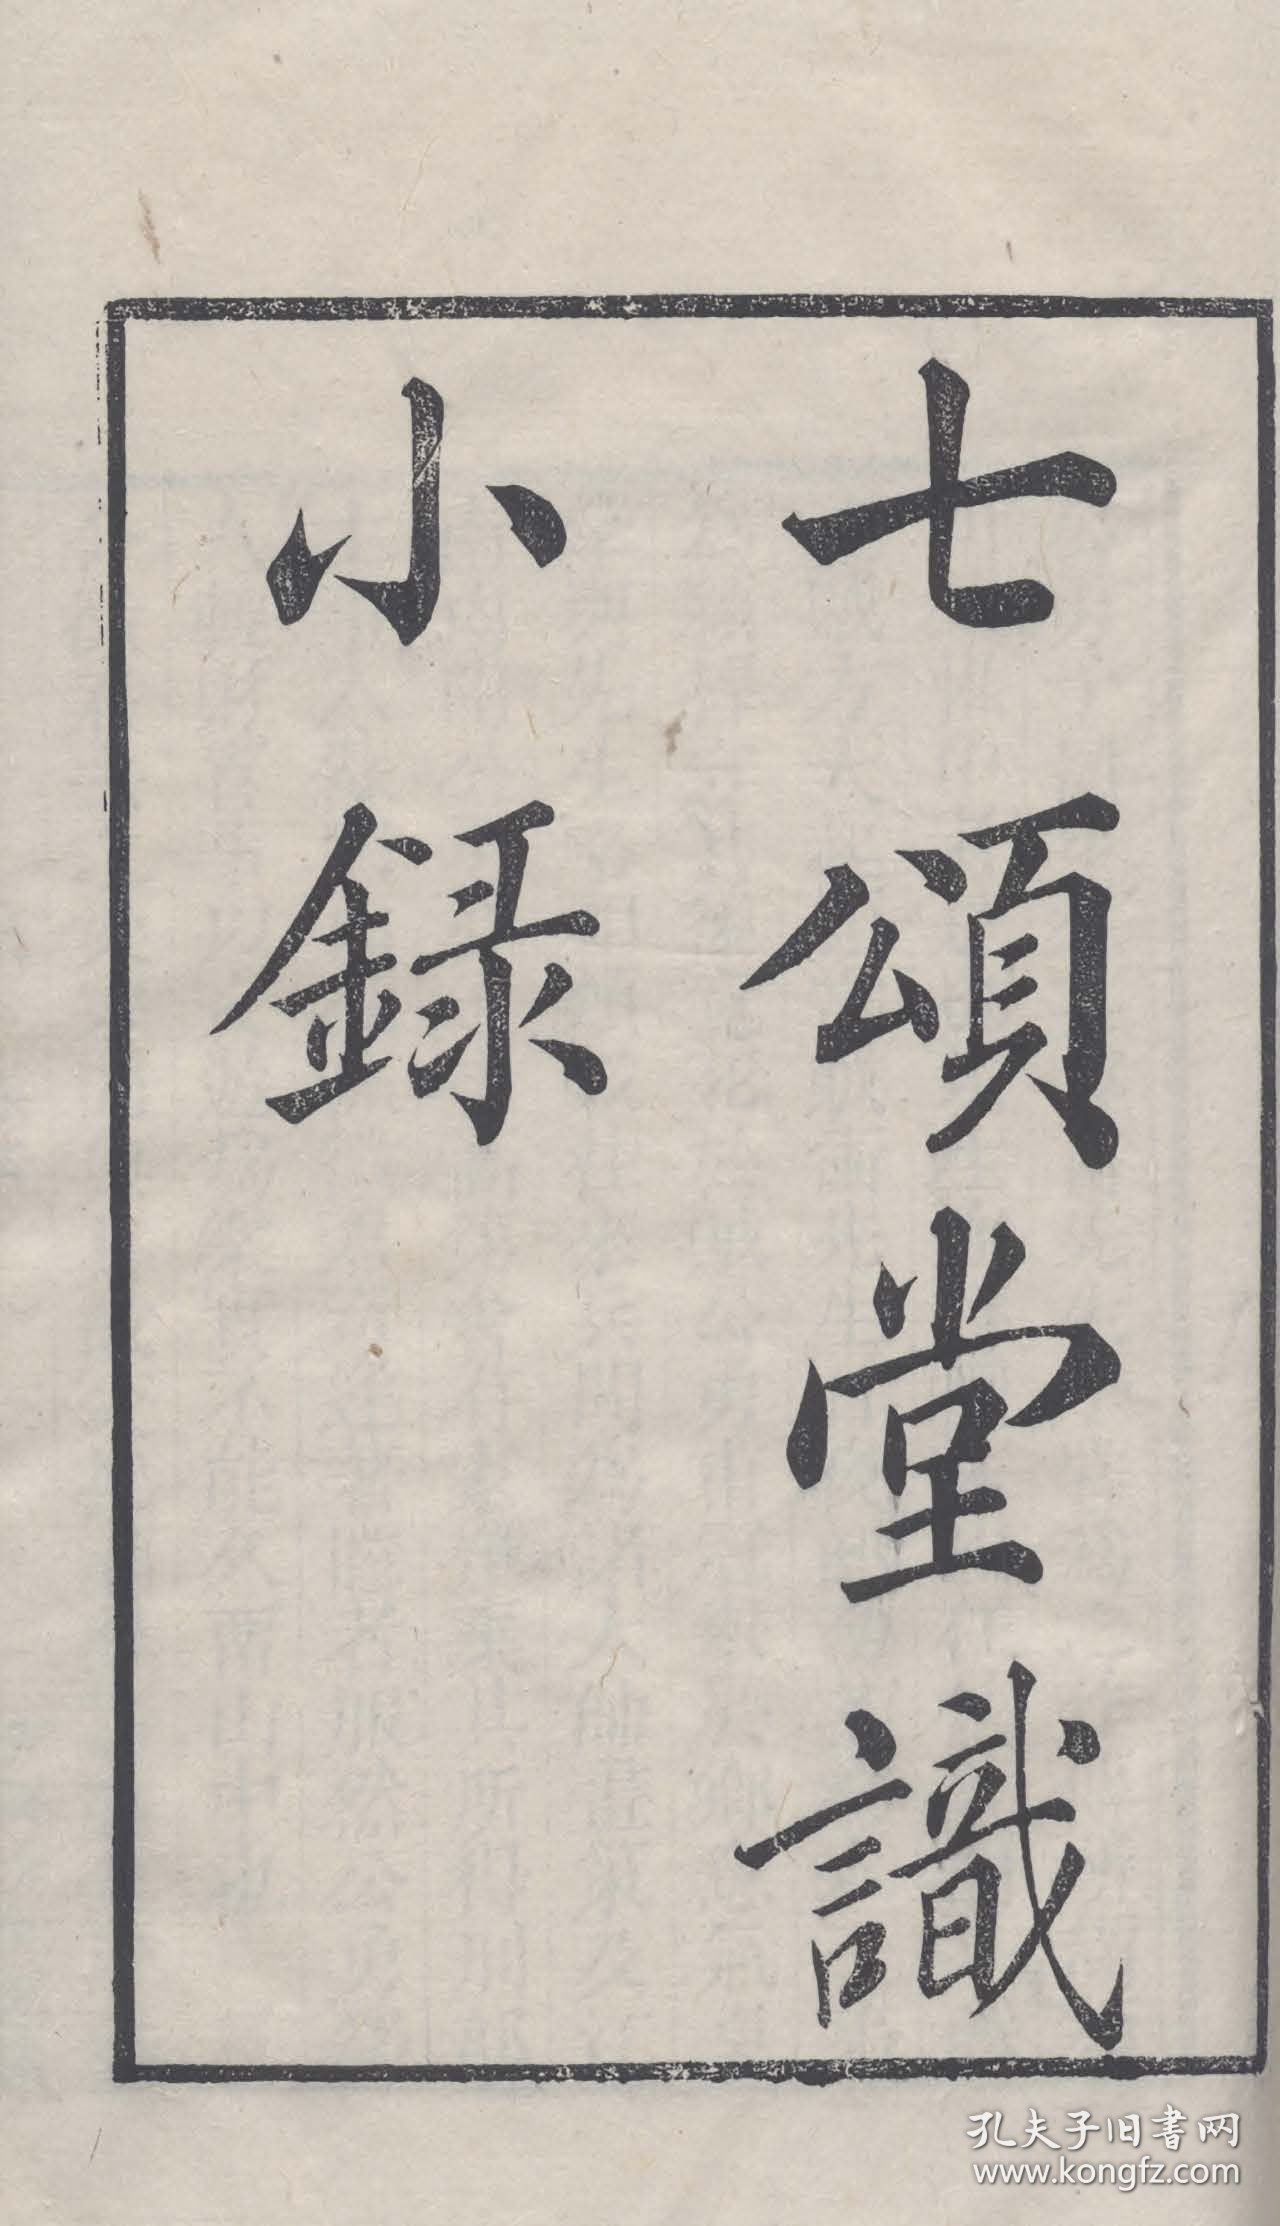 七頌堂識
小録
孔夫子旧書网
www.kongfz.com